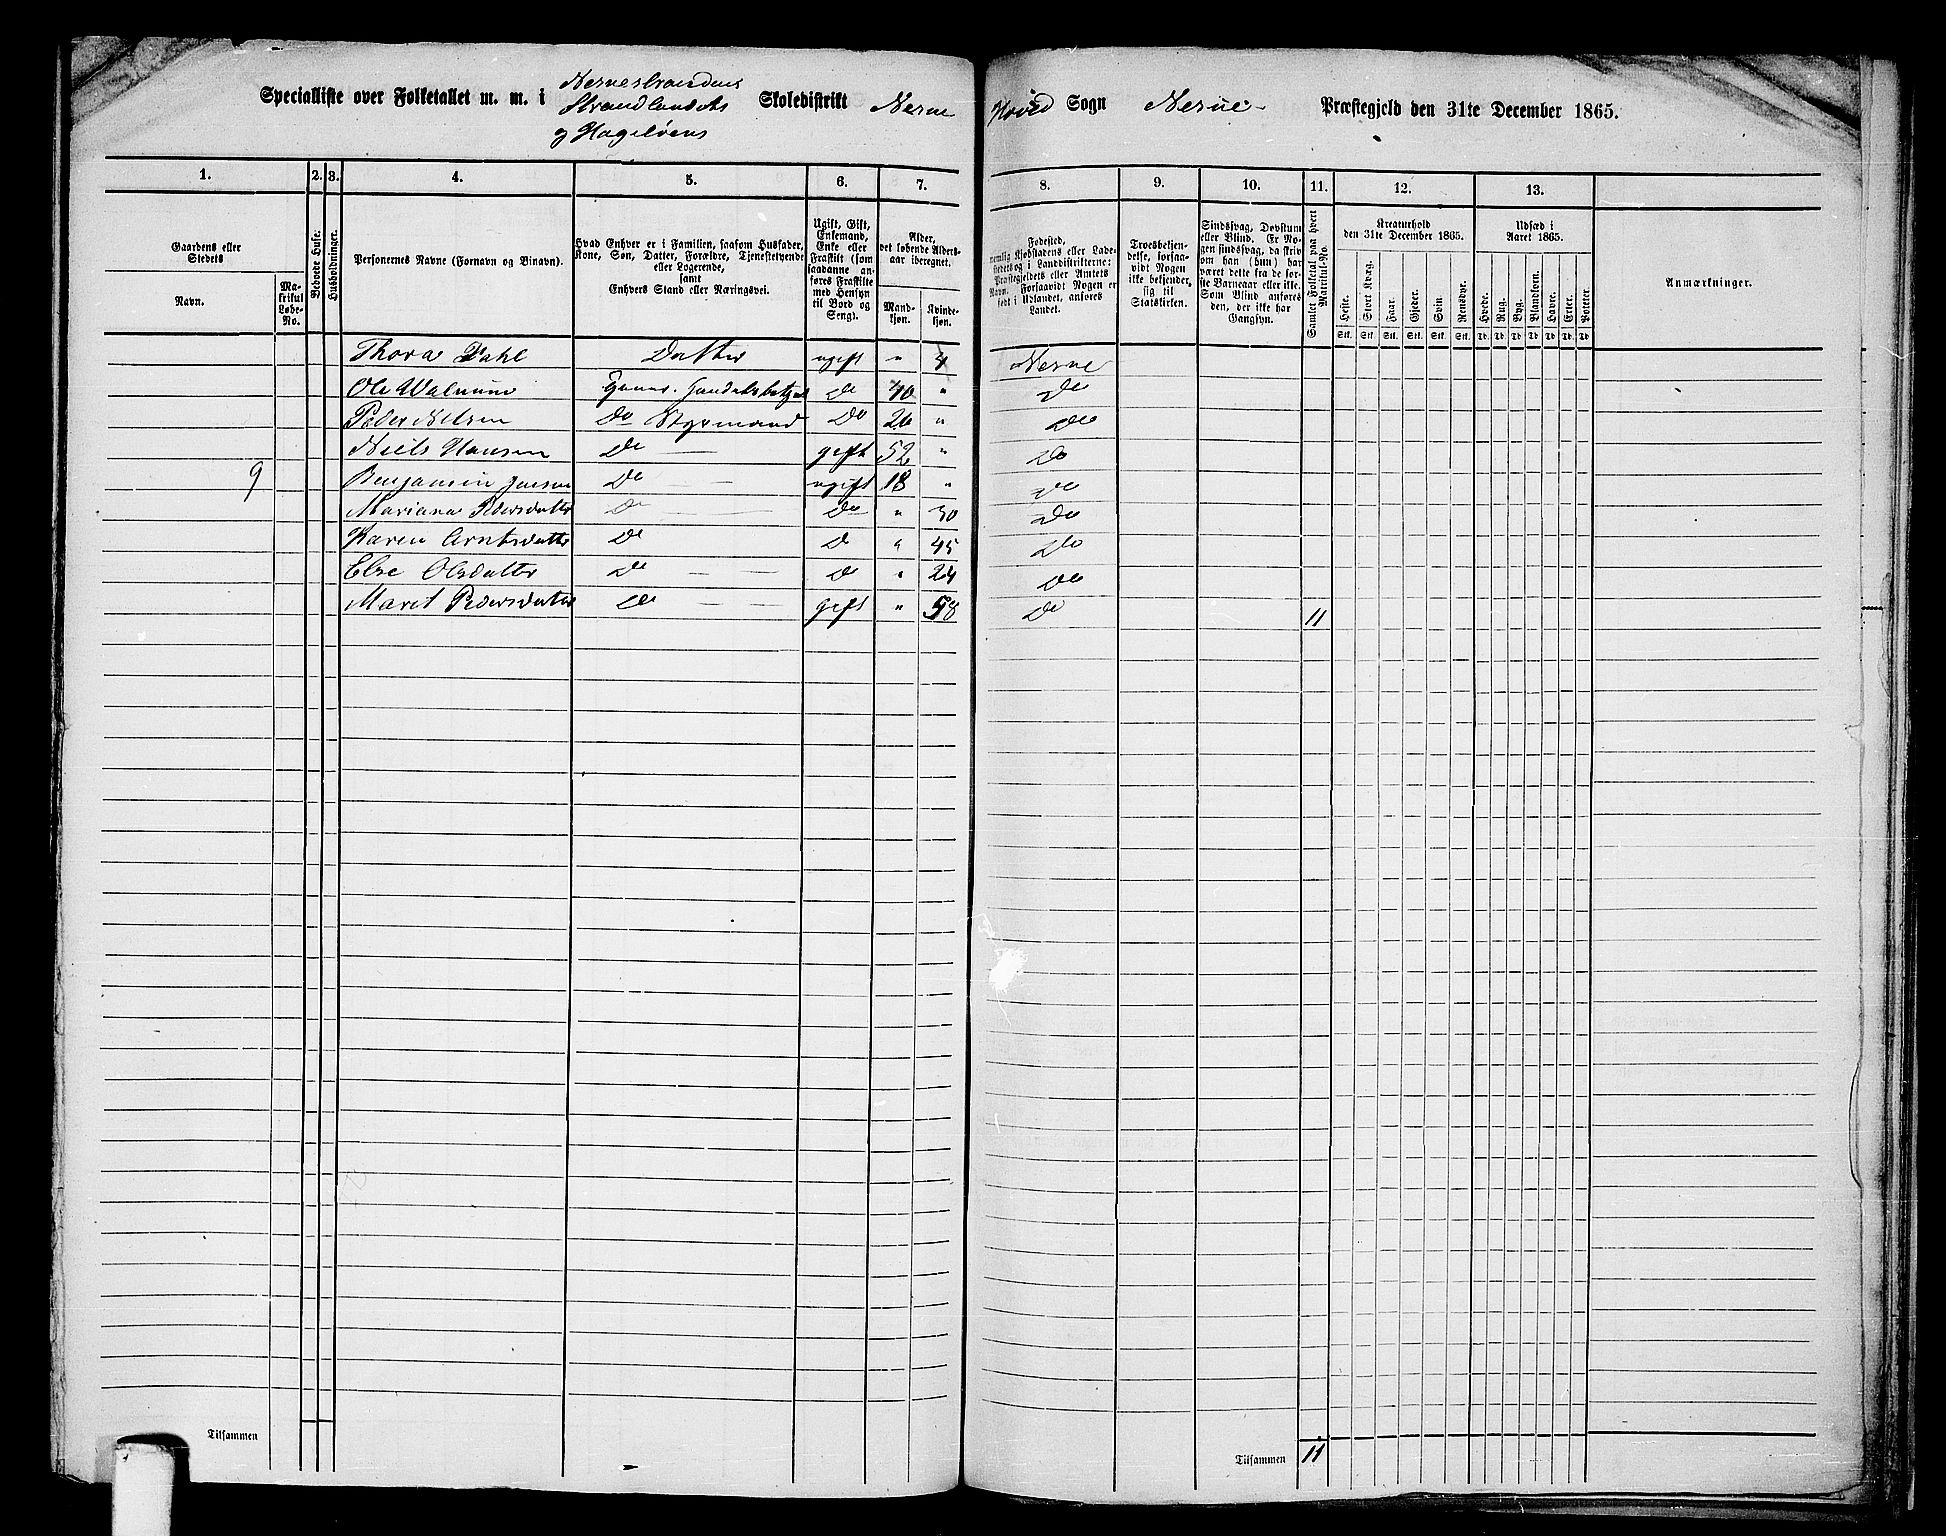 Specialliste over Folketallet m. m. i Nesnestrandens Strandlandets og Hageløens Skoledistrikt Nesne Hoved Sogn Nesne Præstegjeld den 31te December 1865.
1. 2. 3. 4. 5. 6. 7. 8. 9. 10. 11. 12. 13.
Gaardens eller Stedets
Navn.
Matrikul Løbe-No.
Beboede Huse.
Husholdninger.
Personernes Navne (Fornavn og Binavn).
Hvad Enhver er i Familien, saasom Husfader, Kone, Søn, Datter, Forældre, Tjenestetyende eller Logerende, samt Enhvers Stand eller Næringsvei.
Ugift, Gift, Enkemand, Enke eller Fraskilt (som saadanne anføres Fraskilte med Hensyn til Bord og Seng).
Alder, det løbende Aldersaar iberegnet.
Mandkjøn.
Kvindekjøn.
Fødested, nemlig Kjøbstadens eller Ladestedets og i Landdistrikterne: Præstegjeldets eller Amtets Navn. Forsaavidt Nogen er født i Udlandet, anføres Landet.
Troesbekjendelse, forsaavidt Nogen ikke bekjender sig til Statskirken.
Sindssvag, Døvstum eller Blind. Er Nogen sindssvag, da skrives om han (hun) har været dette fra de første Barneaar eller ikke. Som Blind anføres den, der ikke har Gangsyn.
Samlet Folketal paa hvert Matrikul-No.
Kreaturhold den 31te December 1865.
Heste. Stort Kvæg. Faar. Gjeder. Svin. Rensdyr.
Stk. Stk. Stk. Stk. Stk. Stk.
Udsæd i Aaret 1865.
Hvede. Rug. Byg. Blandkorn. Havre. Erter. Poteter.
Td. Td. Td. Td. Td. Td. Td.
Anmærkninger.
Thora Dahl Datter ugift " Nesne
Ole Walnum Do 40 " Do
Peder Nilsen Do Styrmand Do 26 " Do
Niels Hansen Do — gift 52 " Do
9 Benjamin Jensen Do — ugift 18 " Do
Mariana Pedersdatter Do — — Do " 30 Do
Karen Arntsdatter Do D " 45 Do
Else Olsdatter Do — — D " 24 Do
Maret Pedersdatter Do — — gift " 58 Do 11
Tilsammen
Tilsammen 11